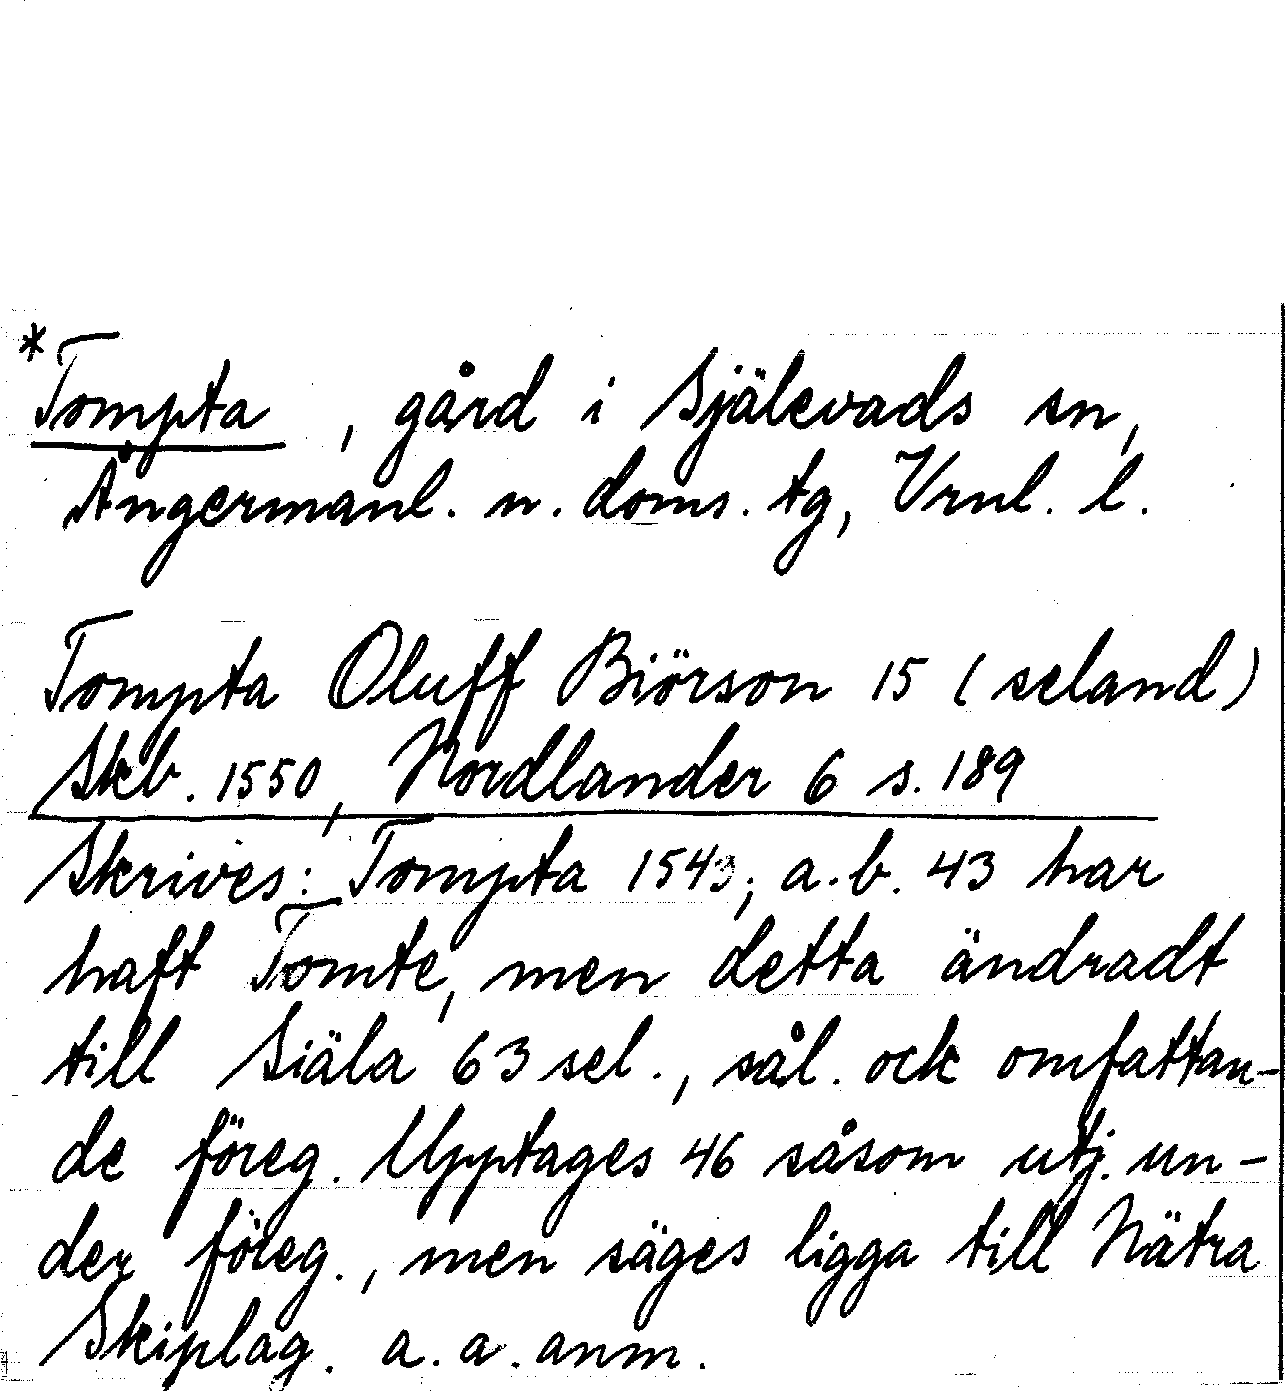 *Tompta, gård i Själevads sn,
Ångermanl. n. doms. tg, Vrnl. l.
Tompta Oluff Biörson 15 (seland)
Skb. 1550, Nordlander 6 s. 189
Skrives: Tompta 1543; a.b. 43 har
haft Tomte, men detta ändradt
till Siäla 63 sel., sål. ock omfattan-
de föreg. Upptages 46 såsom utj. un-
der föreg., men säges ligga till Nätra
Skiplag. a.a. anm.